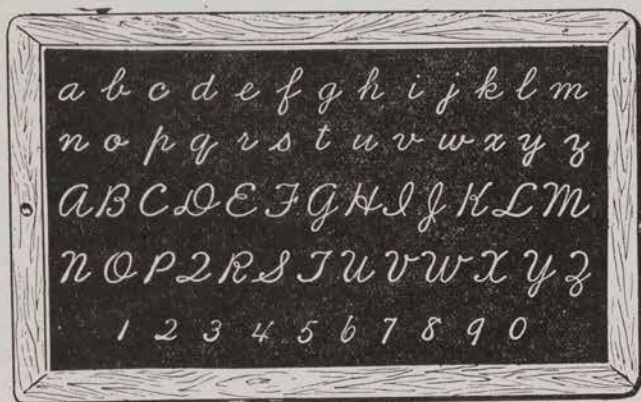 a b c d e f g h i j k l m
n o p q r s t u v w x y z
A B C D E F G H I J K L M
N O P Q R S T U V W X Y Z
1 2 3 4 5 6 7 8 9 0